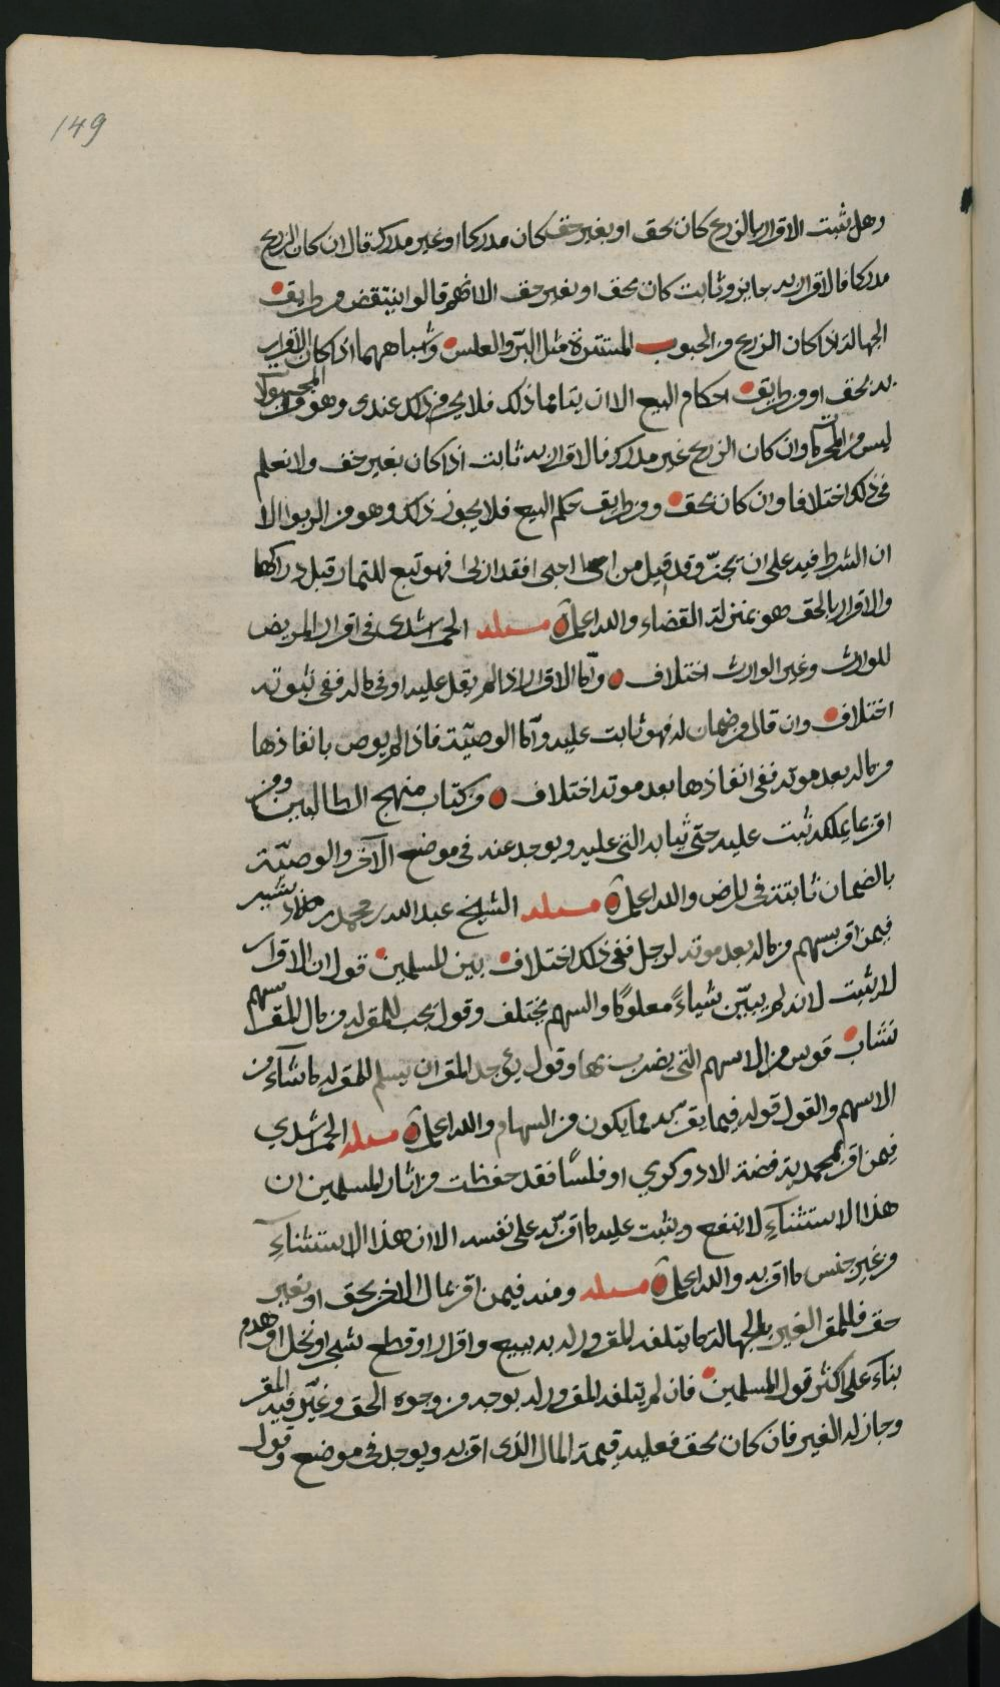 149
وهل يثبت الاقرار بالزرع كان بحق او بغير حق كان مدركا او غير مدرك قال ان كان الزرع
مدركا فالاقرار به جايز وثابت كان بحق او بغير حق الا انهم قالوا ينتقض من طريق
الجهالة اذا كان الزرع من الحبوب المستترة مثل البر والعلس واشباههما اذا كان الاقرار
به بحق او من طريق احكام البيع الا ان يتامما ذلك فلا يحرم ذلك عندى وهو من المجهولات
ليس من المحرمات وان كان الزرع غير مدرك فالاقرار به ثابت اذا كان بغير حق ولا نعلم
فى ذلك اختلافا وان كان بحق ومن طريق حكم البيع فلا يجوز ذلك وهو من الربوا الا
ان الشرط فيه على ان يجزّ وقد قيل من اجبى فقد اربى فهو تبع للثمار قبل دراكها
والاقرار بالحق هو بمنزلة القضاء والله اعلم مسئلة الحمراشدى فى اقرار المريض
للوارث وغير الوارث اختلاف وامّا الاقرار اذا لم يقل عليه او فى ماله ففى ثبوته
اختلاف وان قال من ضمان له فهو ثابت عليه وامّا الوصيّة فاذا لم يوص بانفاذها
من ماله بعد موته ففى انفاذها بعد موته اختلاف ومن كتاب منهج الطالبين ومن
اقر بما يملكه ثبت عليه حتى ثيابه التى عليه ويوجد عنه فى موضع الآخر والوصيّة
بالضمان ثابتة فى المرض والله اعلم مسئلة الشيخ عبدالله بن محمد بن بشير
فيمن اقر بسهم من ماله بعد موته لرجل ففى ذلك اختلاف بين المسلمين قول ان الاقرار
لا يثبت لانه لم يبيّن شياءً معلومًا والسهم مختلف وقول يجب للمقر له من مال المقر سهم
نشاب قوس من الاسهم التى يضرب بها وقول يؤخذ المقر ان يسلم للمقر له ما شآء من
الاسهم والقول قوله فيما يقرّ به مما يكون من السهام والله اعلم مسئلة الحمراشدي
فيمن اقر بمحمدية فضة الا دوكري او فلسًا فقد حفظت من اثار المسلمين ان
هذا الاستثناء لا ينفع ويثبت عليه ما اقرّ به على نفسه الا ان هذا الاستثناء
من غير جنس ما اقر به والله اعلم مسئلة ومنه فيمن اقر بمال لاخر بحق او بغير
حق فللمقر الغير بالجهالة ما يتلفه المقر له به ببيع واقرار او قطع شجر او نخل او هدم
بناء على اكثر قول المسلمين فان لم يتلفه المقر له بوجه من وجوه الحق وغيّر فيه المقر
وجاز له الغير فان كان بحق فعليه قيمة المال الذى اقر به ويوجد فى موضع وقول